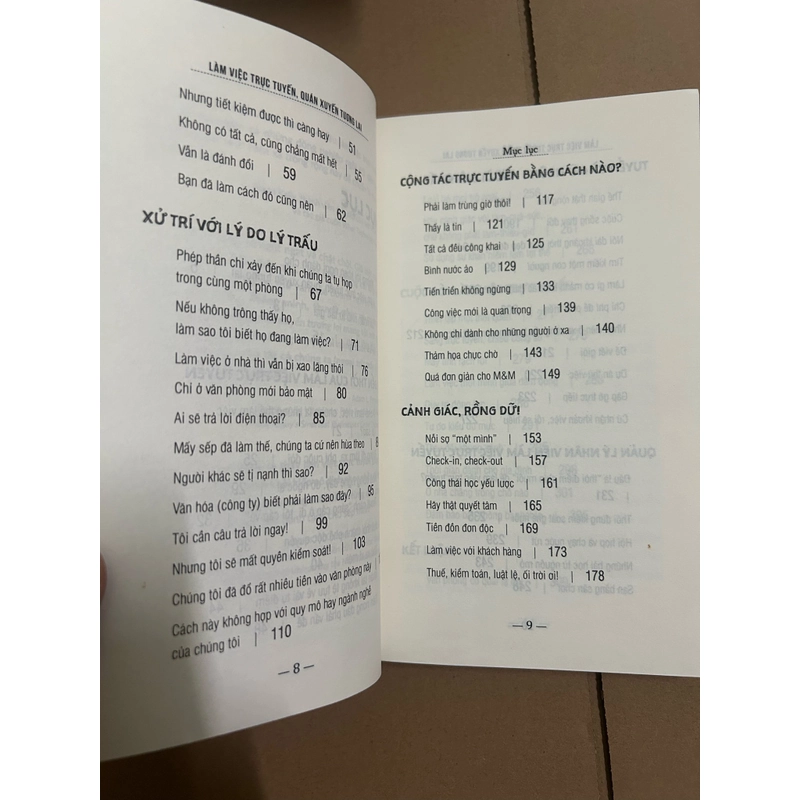 LÀM VIỆC TRỰC TUYẾN, QUÁN XUYẾN TƯƠNG LAI
Nhưng tiết kiệm được thì càng hay | 51
Không có tất cả, cũng chẳng mất hết | 55
Vẫn là đánh đổi | 59
Bạn đã làm cách đó cũng nên | 62
XỬ TRÍ VỚI LÝ DO LÝ TRẤU
Phép thần chỉ xảy đến khi chúng ta tụ họp
trong cùng một phòng | 67
Nếu không trông thấy họ,
làm sao tôi biết họ đang làm việc? | 71
Làm việc ở nhà thì vẫn bị xao lãng thôi | 76
Chỉ ở văn phòng mới bảo mật | 80
Ai sẽ trả lời điện thoại? | 85
Mấy sếp đã làm thế, chúng ta cứ nên hùa theo |
Người khác sẽ tị nạnh thì sao? | 92
Văn hóa (công ty) biết phải làm sao đây? | 95
Tôi cần câu trả lời ngay! | 99
Nhưng tôi sẽ mất quyền kiểm soát! | 103
Chúng tôi đã đổ rất nhiều tiền vào văn phòng này
Cách này không hợp với quy mô hay ngành nghề
của chúng tôi | 110
— 8 —
Mục lục
CỘNG TÁC TRỰC TUYẾN BẰNG CÁCH NÀO?
Phải làm trùng giờ thôi! | 117
Thấy là tin | 121
Tất cả đều công khai | 125
Bình nước ảo | 129
Tiến triển không ngừng | 133
Công việc mới là quan trọng | 139
Không chỉ dành cho những người ở xa | 140
Thảm họa chực chờ | 143
Quá đơn giản cho M&M | 149
CẢNH GIÁC, RỒNG DỮ!
Nỗi sợ "một mình" | 153
Check-in, check-out | 157
Công thái học yếu lược | 161
Hãy thật quyết tâm | 165
Tiền đồn đơn độc | 169
Làm việc với khách hàng | 173
Thuế, kiểm toán, luật lệ, ối trời ơi! | 178
— 9 —